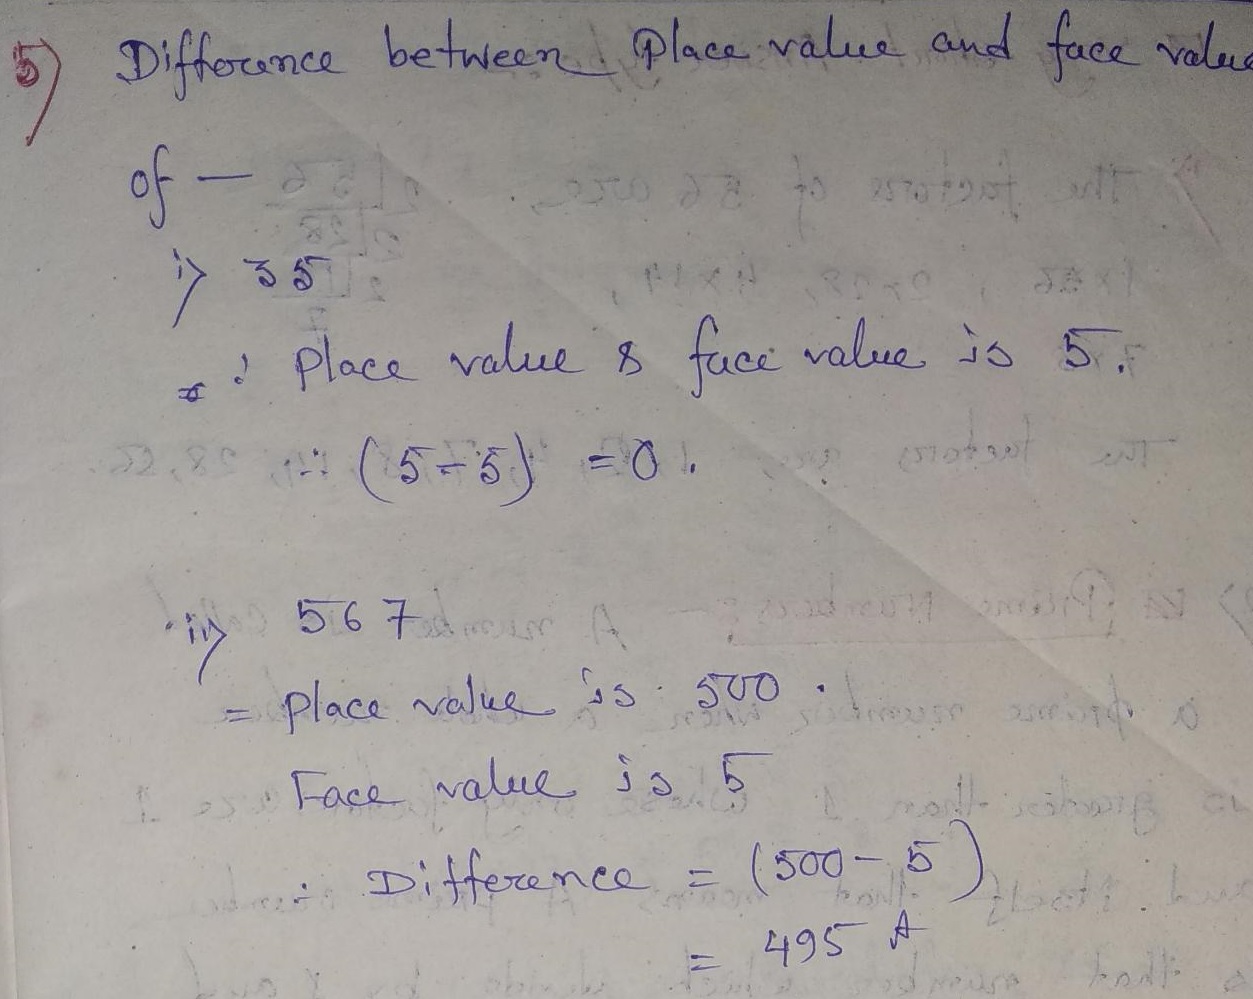 5) Difference between Place value and face value
of —
i) 35
∴ Place value & face value is 5.
∴ (5-5) = 0.
ii) 567
= Place value is 500.
Face value is 5
∴ Difference = (500 - 5)
= 495 A